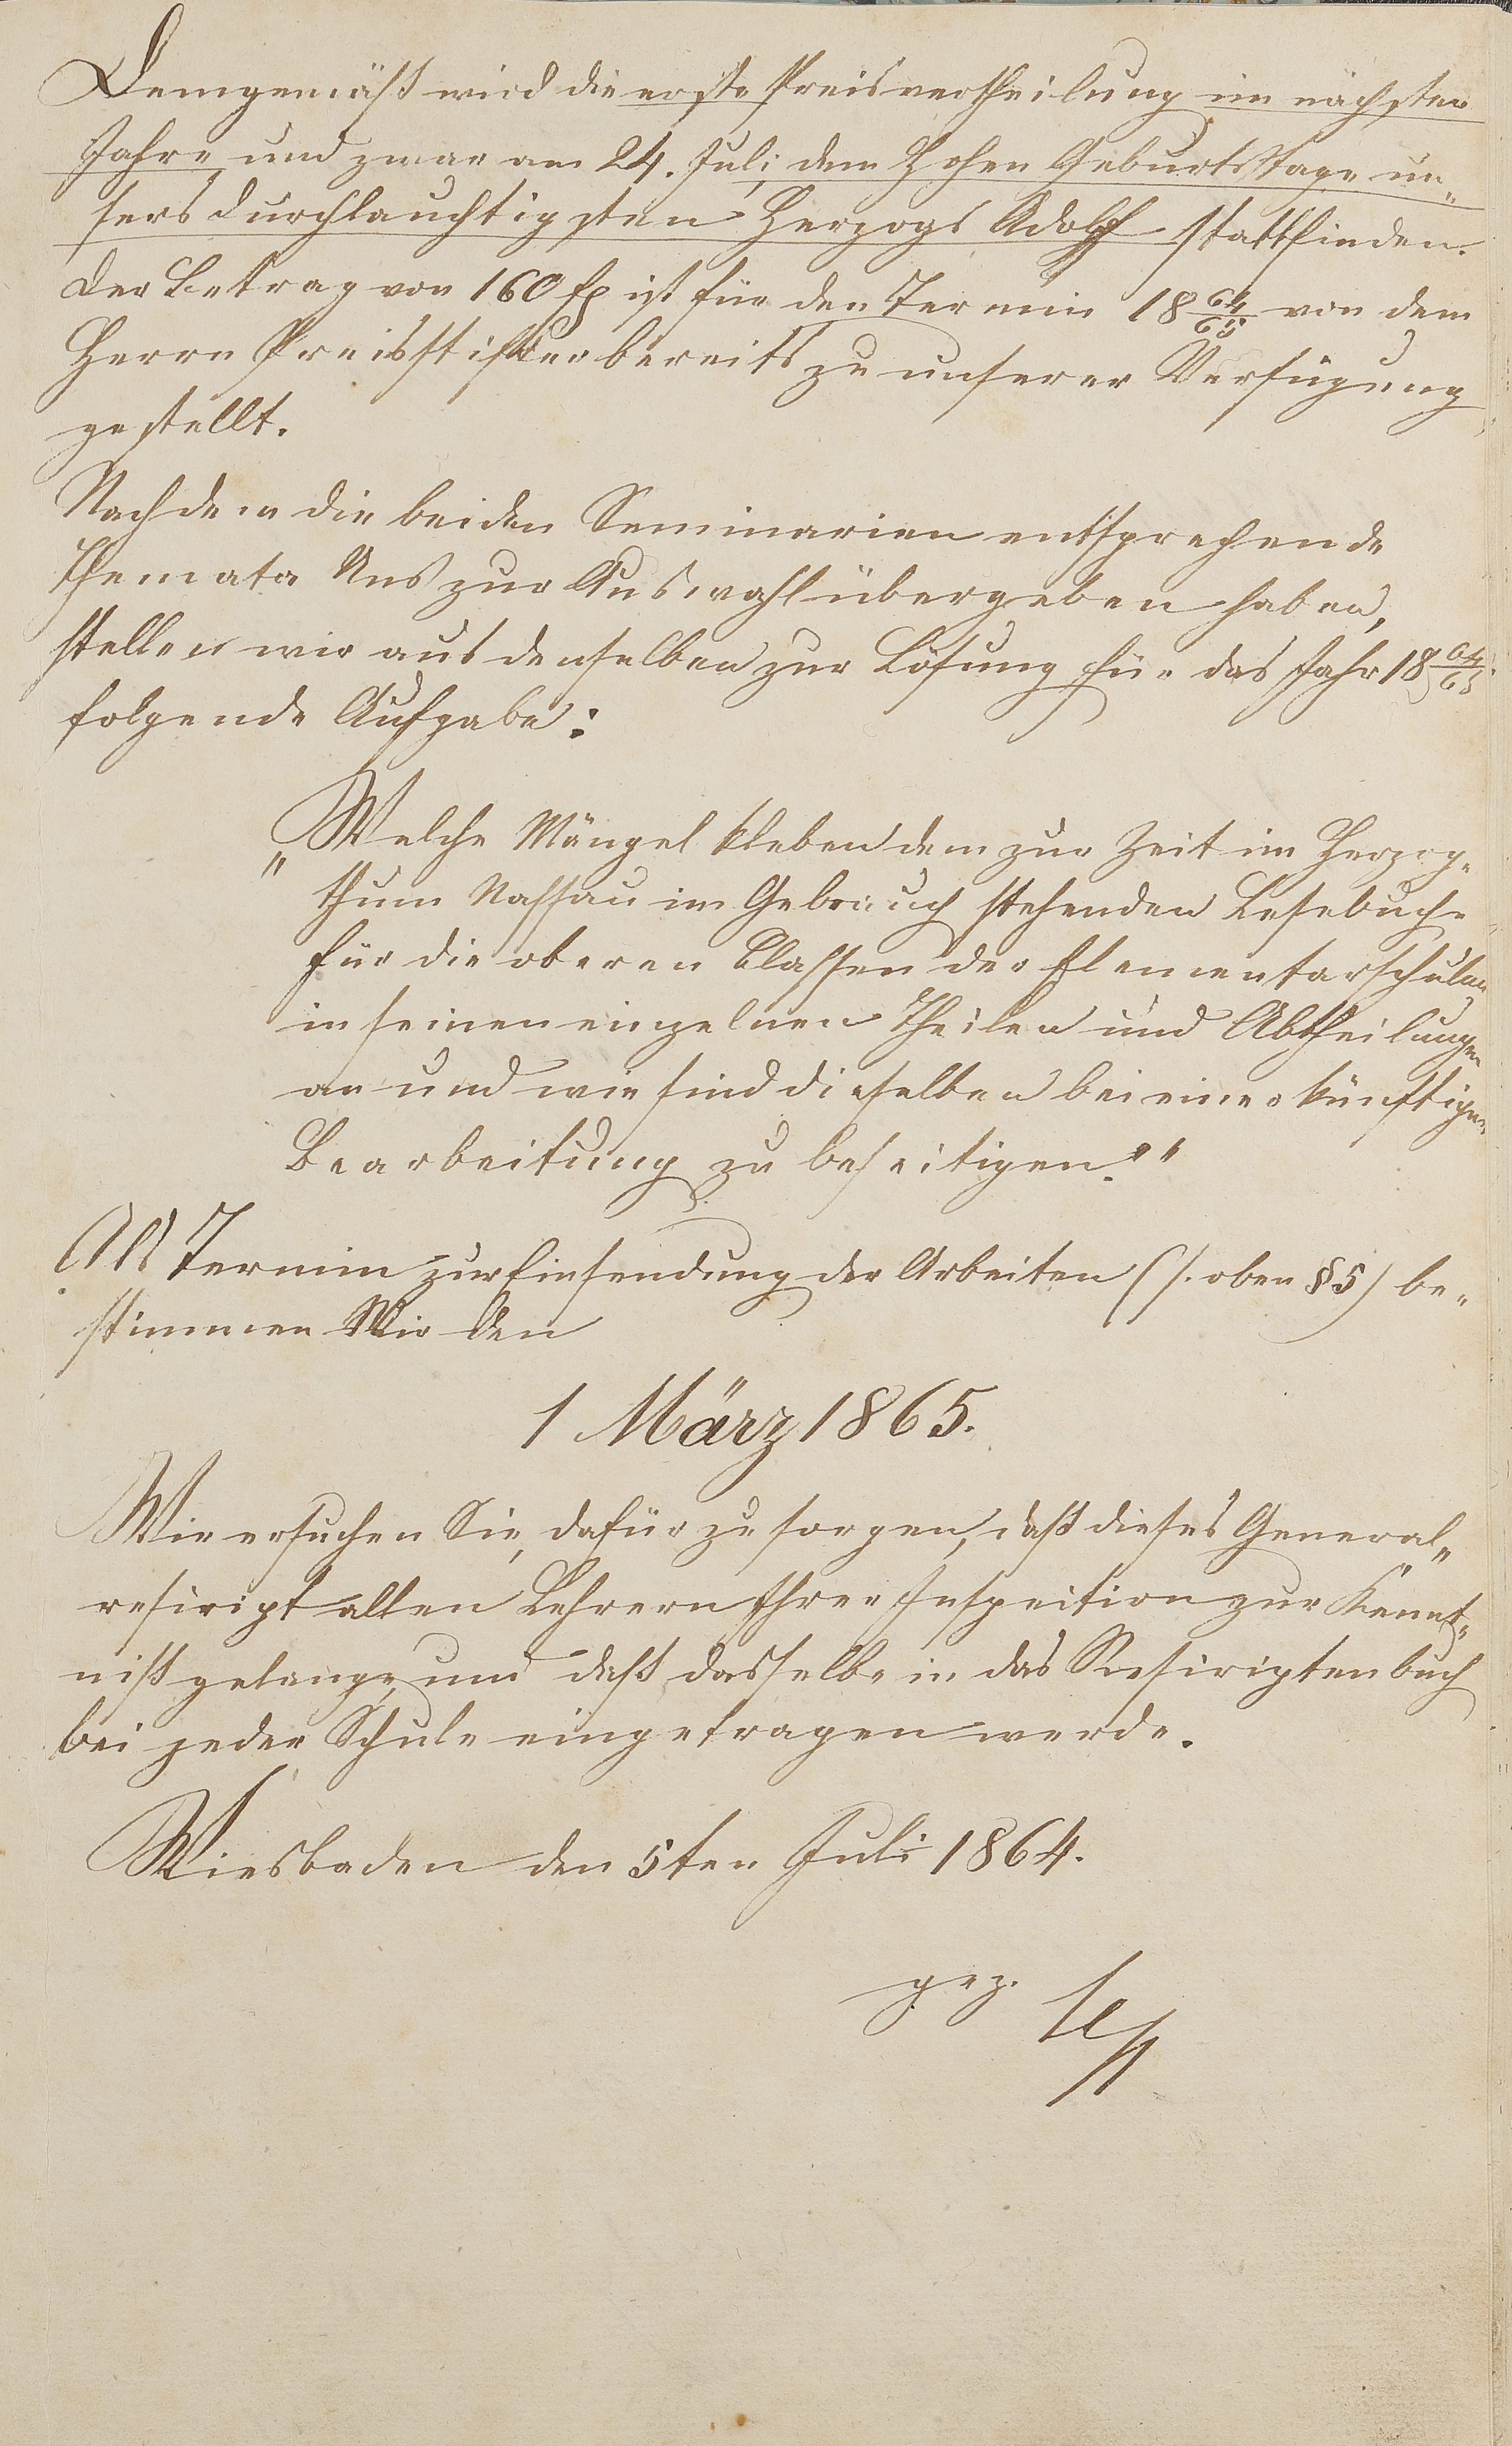 Demgemäß wird die erste Preisvertheilung im nächsten
Jahre und zwar am 24. Juli, dem hohen Geburtstage un-
sers durchlauchtigsten Herzogs Adolph stattfinden.
Der Betrag von 160 fl ist für den Termin 18 64/65 von dem
Herrn Preisstifter bereits zu unserer Verfügung
gestellt.
Nachdem die beiden Seminarien entsprechende
Themata Uns zur Auswahl übergeben haben,
stellen wir aus denselben zur Lösung für das Jahr 18 64/65
folgende Aufgabe:
„Welche Mängel kleben dem zur Zeit im Herzog-
thum Nassau im Gebrauch stehenden Lesebuche
für die oberen Classen der Elementarschulen
in seinen einzelnen Theilen und Abtheilungen
an und wie sind dieselben bei einer künftigen
Bearbeitung zu beseitigen?"
Als Termin zur Einsendung der Arbeiten (s. oben § 5) be-
stimmen Wir den
1 März 1865.
Wir ersuchen Sie, dafür zu sorgen, daß dieses General-
rescript allen Lehrern Ihrer Inspection zur Kennt-
niß gelange, und daß dasselbe in das Rescriptenbuch
bei jeder Schule eingetragen werde.
Wiesbaden den 5ten Juli 1864.
gez.